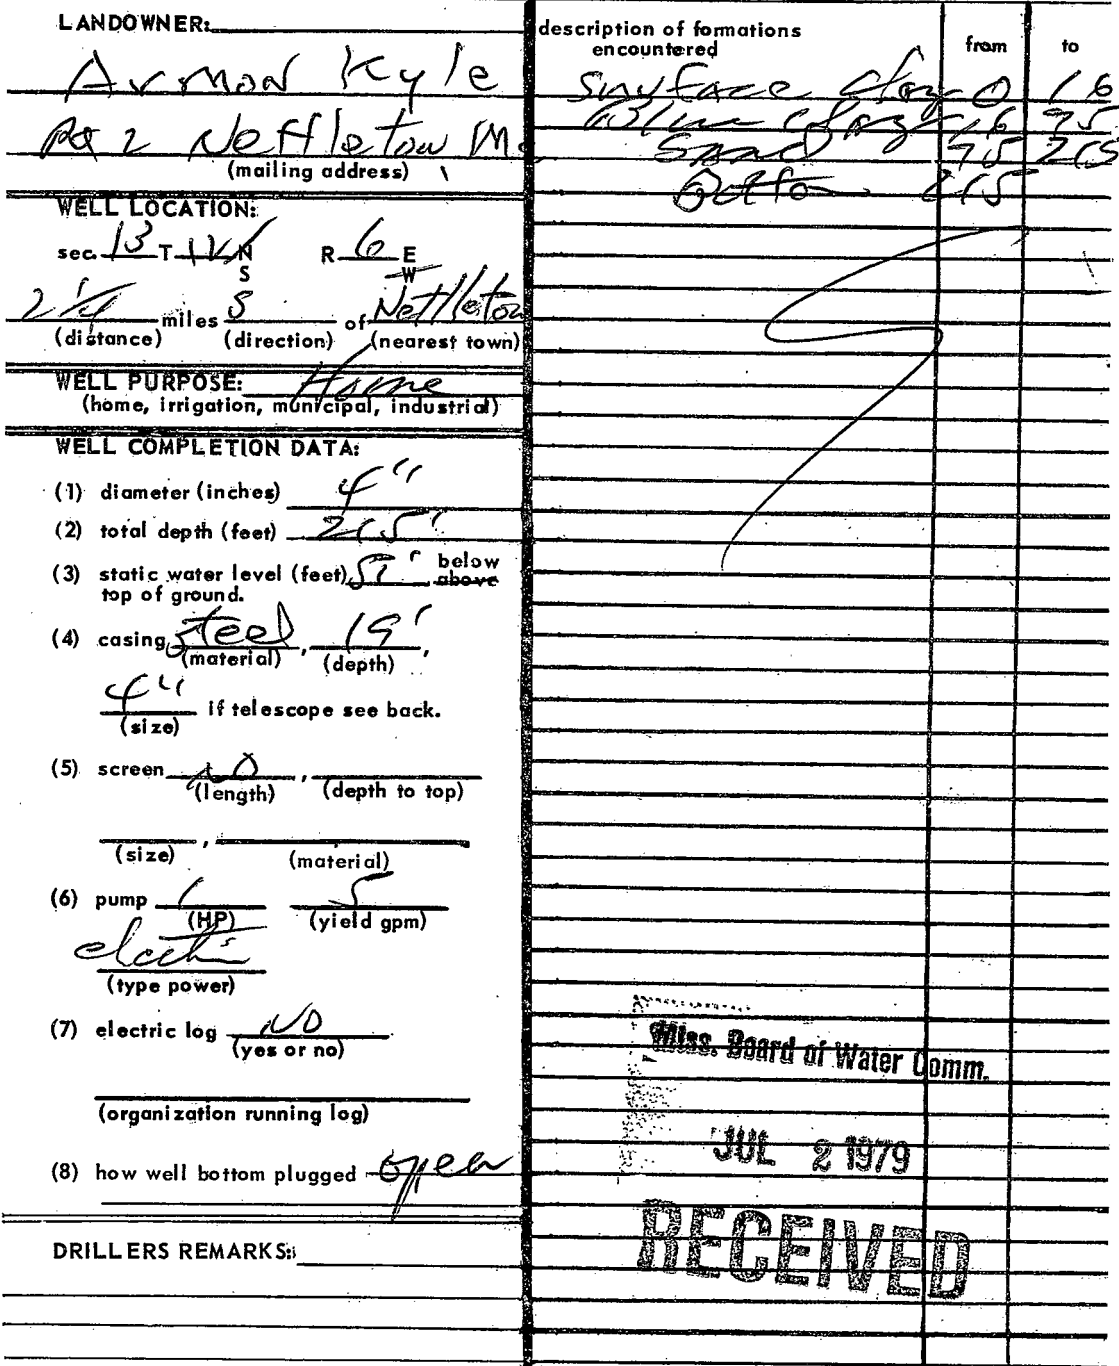 LANDOWNER:
Armon Kyle
Rt 2 Nettleton Ms
(mailing address)
WELL LOCATION:
sec. 13 T 11 N
S
R 6 E
W
2 1/4 miles S of Nettleton
(distance) (direction) (nearest town)
WELL PURPOSE: Home
(home, irrigation, municipal, industrial)
WELL COMPLETION DATA:
(1) diameter (inches) 4"
(2) total depth (feet) 215'
(3) static water level (feet) 51' below
above
top of ground.
(4) casing steel, 19',
(material) (depth)
4" if telescope see back.
(size)
(5) screen NO,
(length) (depth to top)
,
(size) (material)
(6) pump 1 5
(HP) (yield gpm)
electric
(type power)
(7) electric log NO
(yes or no)
(organization running log)
(8) how well bottom plugged open
DRILLERS REMARKS:
description of formations
encountered
from to
Surface clay 0 16
Blue clay 16 95
Sand 95 215
Bottom 215
Miss. Board of Water Comm.
JUL 2 1979
RECEIVED